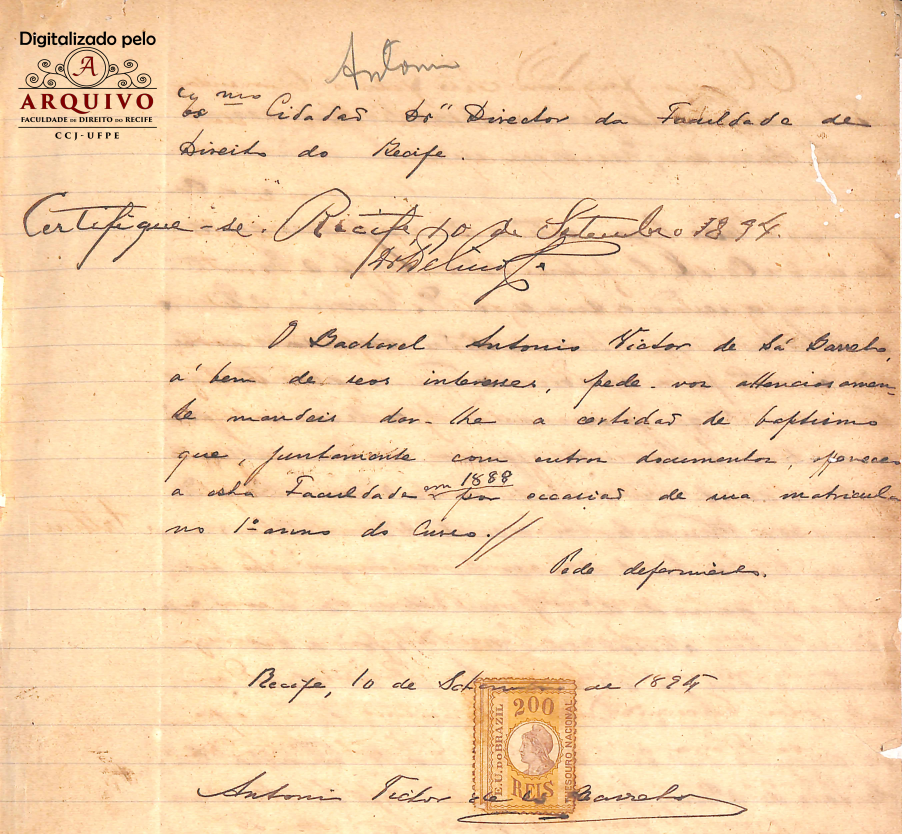 Digitalizado pelo
A
ARQUIVO
FACULDADE DE DIREITO DO RECIFE
CCJ-UFPE
Antonio
Exmo Cidadão Dr Director da Faculdade de
Direito do Recife.
Certifique-se. Recife 10 de Setembro 1894.
O Bacharel Antonio Victor de Sá Barreto,
á bem de seos interesses, pede-vos attenciosamen-
te mandeis dar-lhe a certidão de baptismo
que, juntamente com outros documentos, offereceo
a esta Faculdade em 1888 por occasião de sua matricula
no 1º anno do Curso.//
Pede deferimento.
Recife, 10 de Setembro de 1894
E.U. DO BRAZIL
200
REIS
THESOURO NACIONAL
Antonio Victor de Sá Barreto